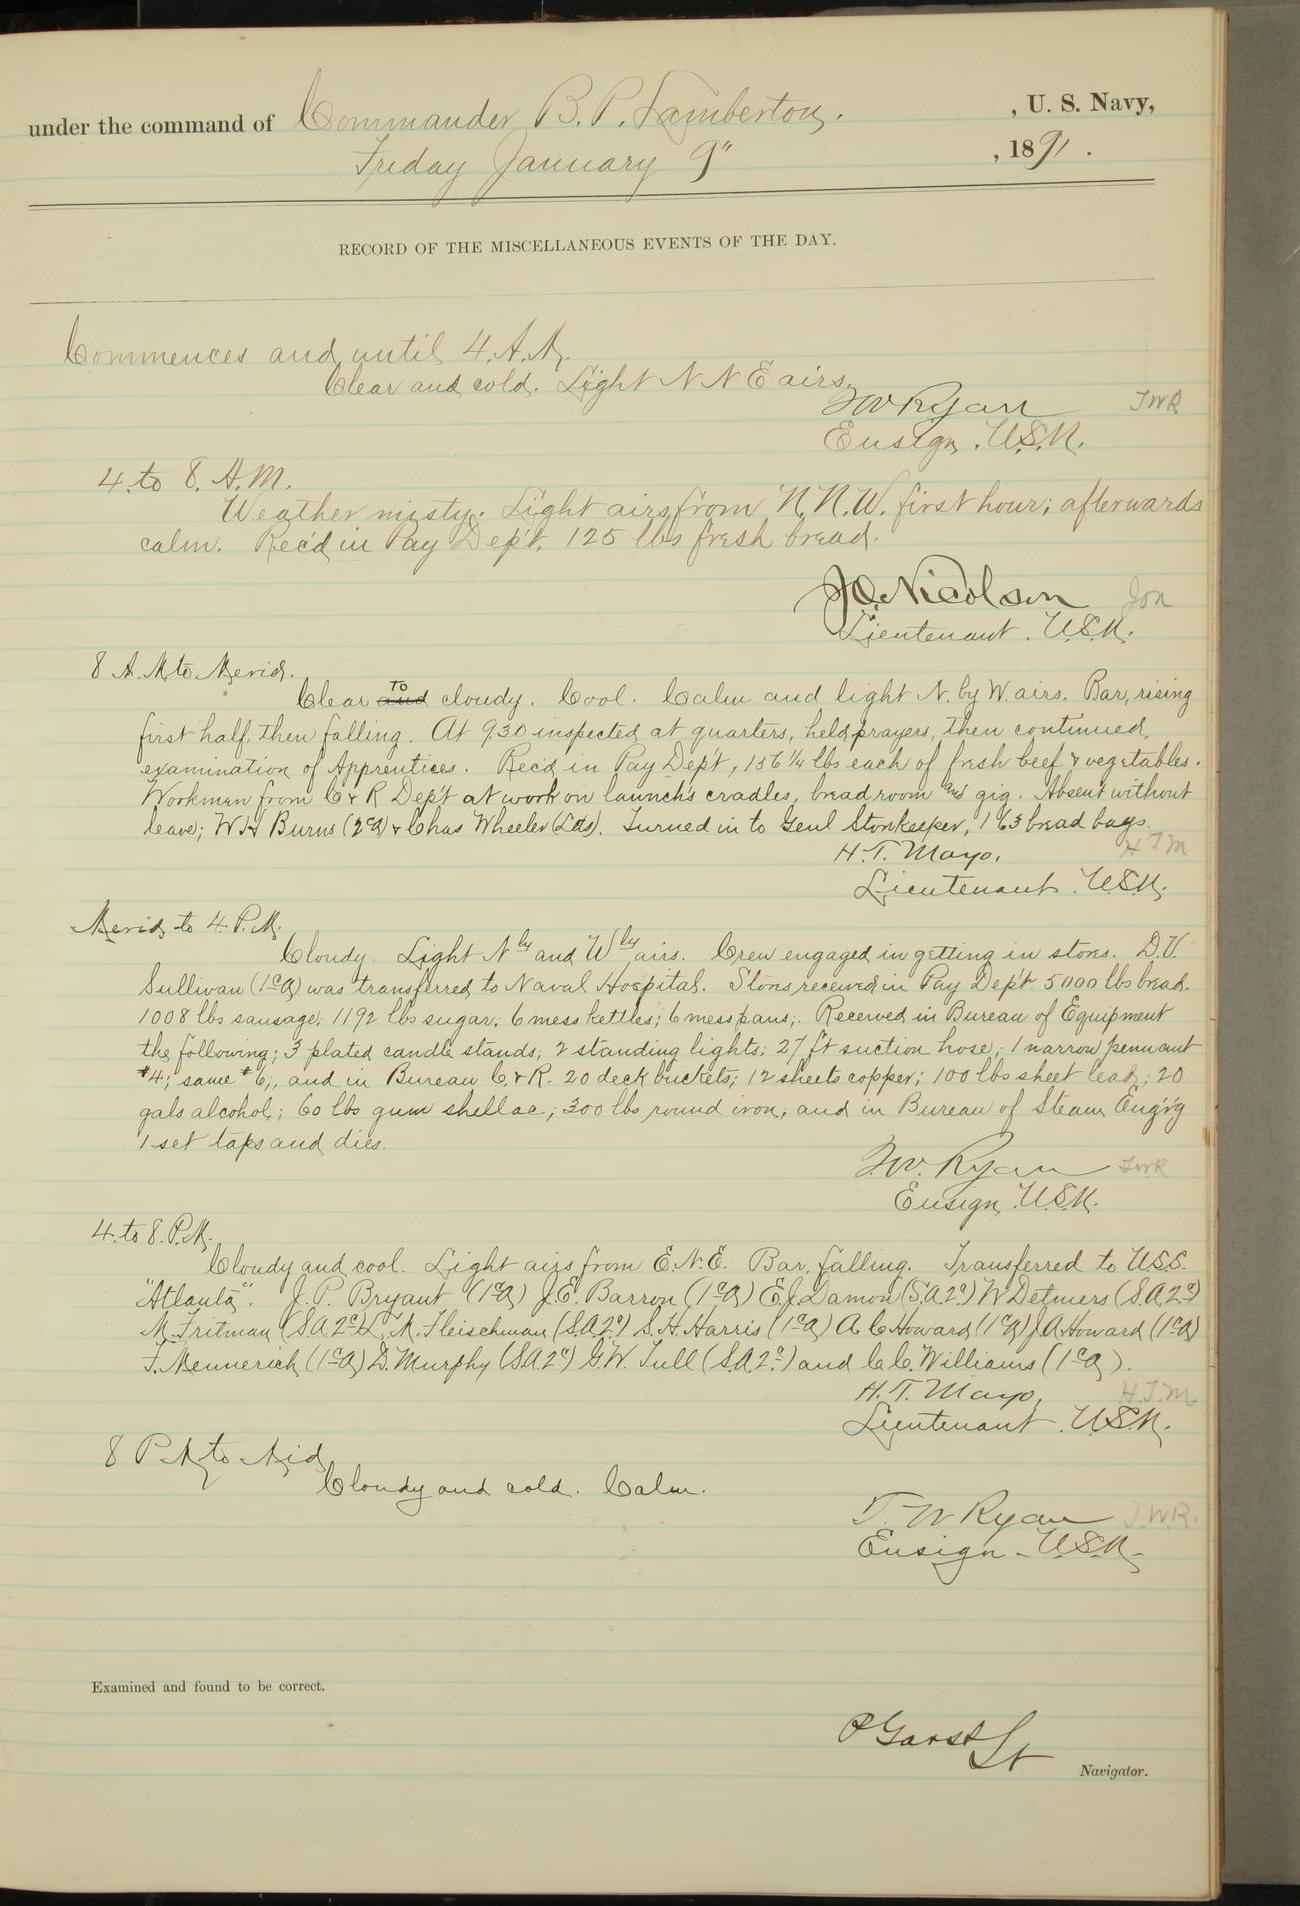 under the command of Commander B. P. Lamberton. , U. S. Navy,
Friday January 9" , 1891 .
RECORD OF THE MISCELLANEOUS EVENTS OF THE DAY.
Commences and until 4. A. M.
Clear and cold. Light N N E airs.
T W Ryan TWR
Ensign. U.S.N.
4. to 8. A. M.
Weather misty. Light airs from N. N. W. first hour; afterwards
calm. Rec'd in Pay Dep't. 125 lbs fresh bread.
J O. Nicolson Jon
Lieutenant. U.S.N.
8 A. M. to Merid.
Clear and TO cloudy. Cool. Calm and light N. by W. airs. Bar, rising
first half, then falling. At 9.30 inspected at quarters, held prayers, then continued
examination of Apprentices. Rec'd in Pay Dep't, 156 1/4 lbs each of fresh beef & vegetables.
Workmen from C & R Dep't at work on launch's cradles, bread room and gig. Absent without
leave; W H Burns (2ca) & Chas Wheeler (Lds). Turned in to Genl Storekeeper, 163 bread bags.
H. T. Mayo. H T M
Lieutenant. U.S.N.
Merid to 4. P. M.
Cloudy. Light Nly and Wly airs. Crew engaged in getting in stores. D. V.
Sullivan (1ca) was transferred to Naval Hospital. Stores received in Pay Dep't 5000 lbs bread.
1008 lbs sausage; 1192 lbs sugar; 6 mess kettles; 6 mess pans;. Received in Bureau of Equipment
the following; 3 plated candle stands; 2 standing lights; 27 ft suction hose; 1 narrow pennant
#4; same #6;, and in Bureau C. & R. 20 deck buckets; 12 sheets copper; 100 lbs sheet lead; 20
gals alcohol; 60 lbs gum shellac; 300 lbs round iron; and in Bureau of Steam Eng'r'g
1 set taps and dies.
T. W. Ryan TWR
Ensign. U.S.N.
4. to 8. P. M.
Cloudy and cool. Light airs from E. N. E. Bar, falling. Transferred to U.S.S.
"Atlanta". J. P. Bryant (1ca) J. E. Barron (1ca) E. J. Damon (S.A.2c) W Detmers (S.A.2c)
M. Fritman (S.A.2c) L. M. Fleischman (S.A.2c) S. H. Harris (1ca) A. C. Howard (1ca) J. A. Howard (1ca)
F. Mennerich (1ca) D. Murphy (S.A.2c) G. W. Tull (S.A.2c) and C. C. Williams (1ca).
H. T. Mayo, H. T. M
Lieutenant. U.S.N.
8 P M to Mid
Cloudy and cold. Calm.
T. W Ryan T. W. R.
Ensign - U.S.N -
Examined and found to be correct.
P Garst Lt
Navigator.